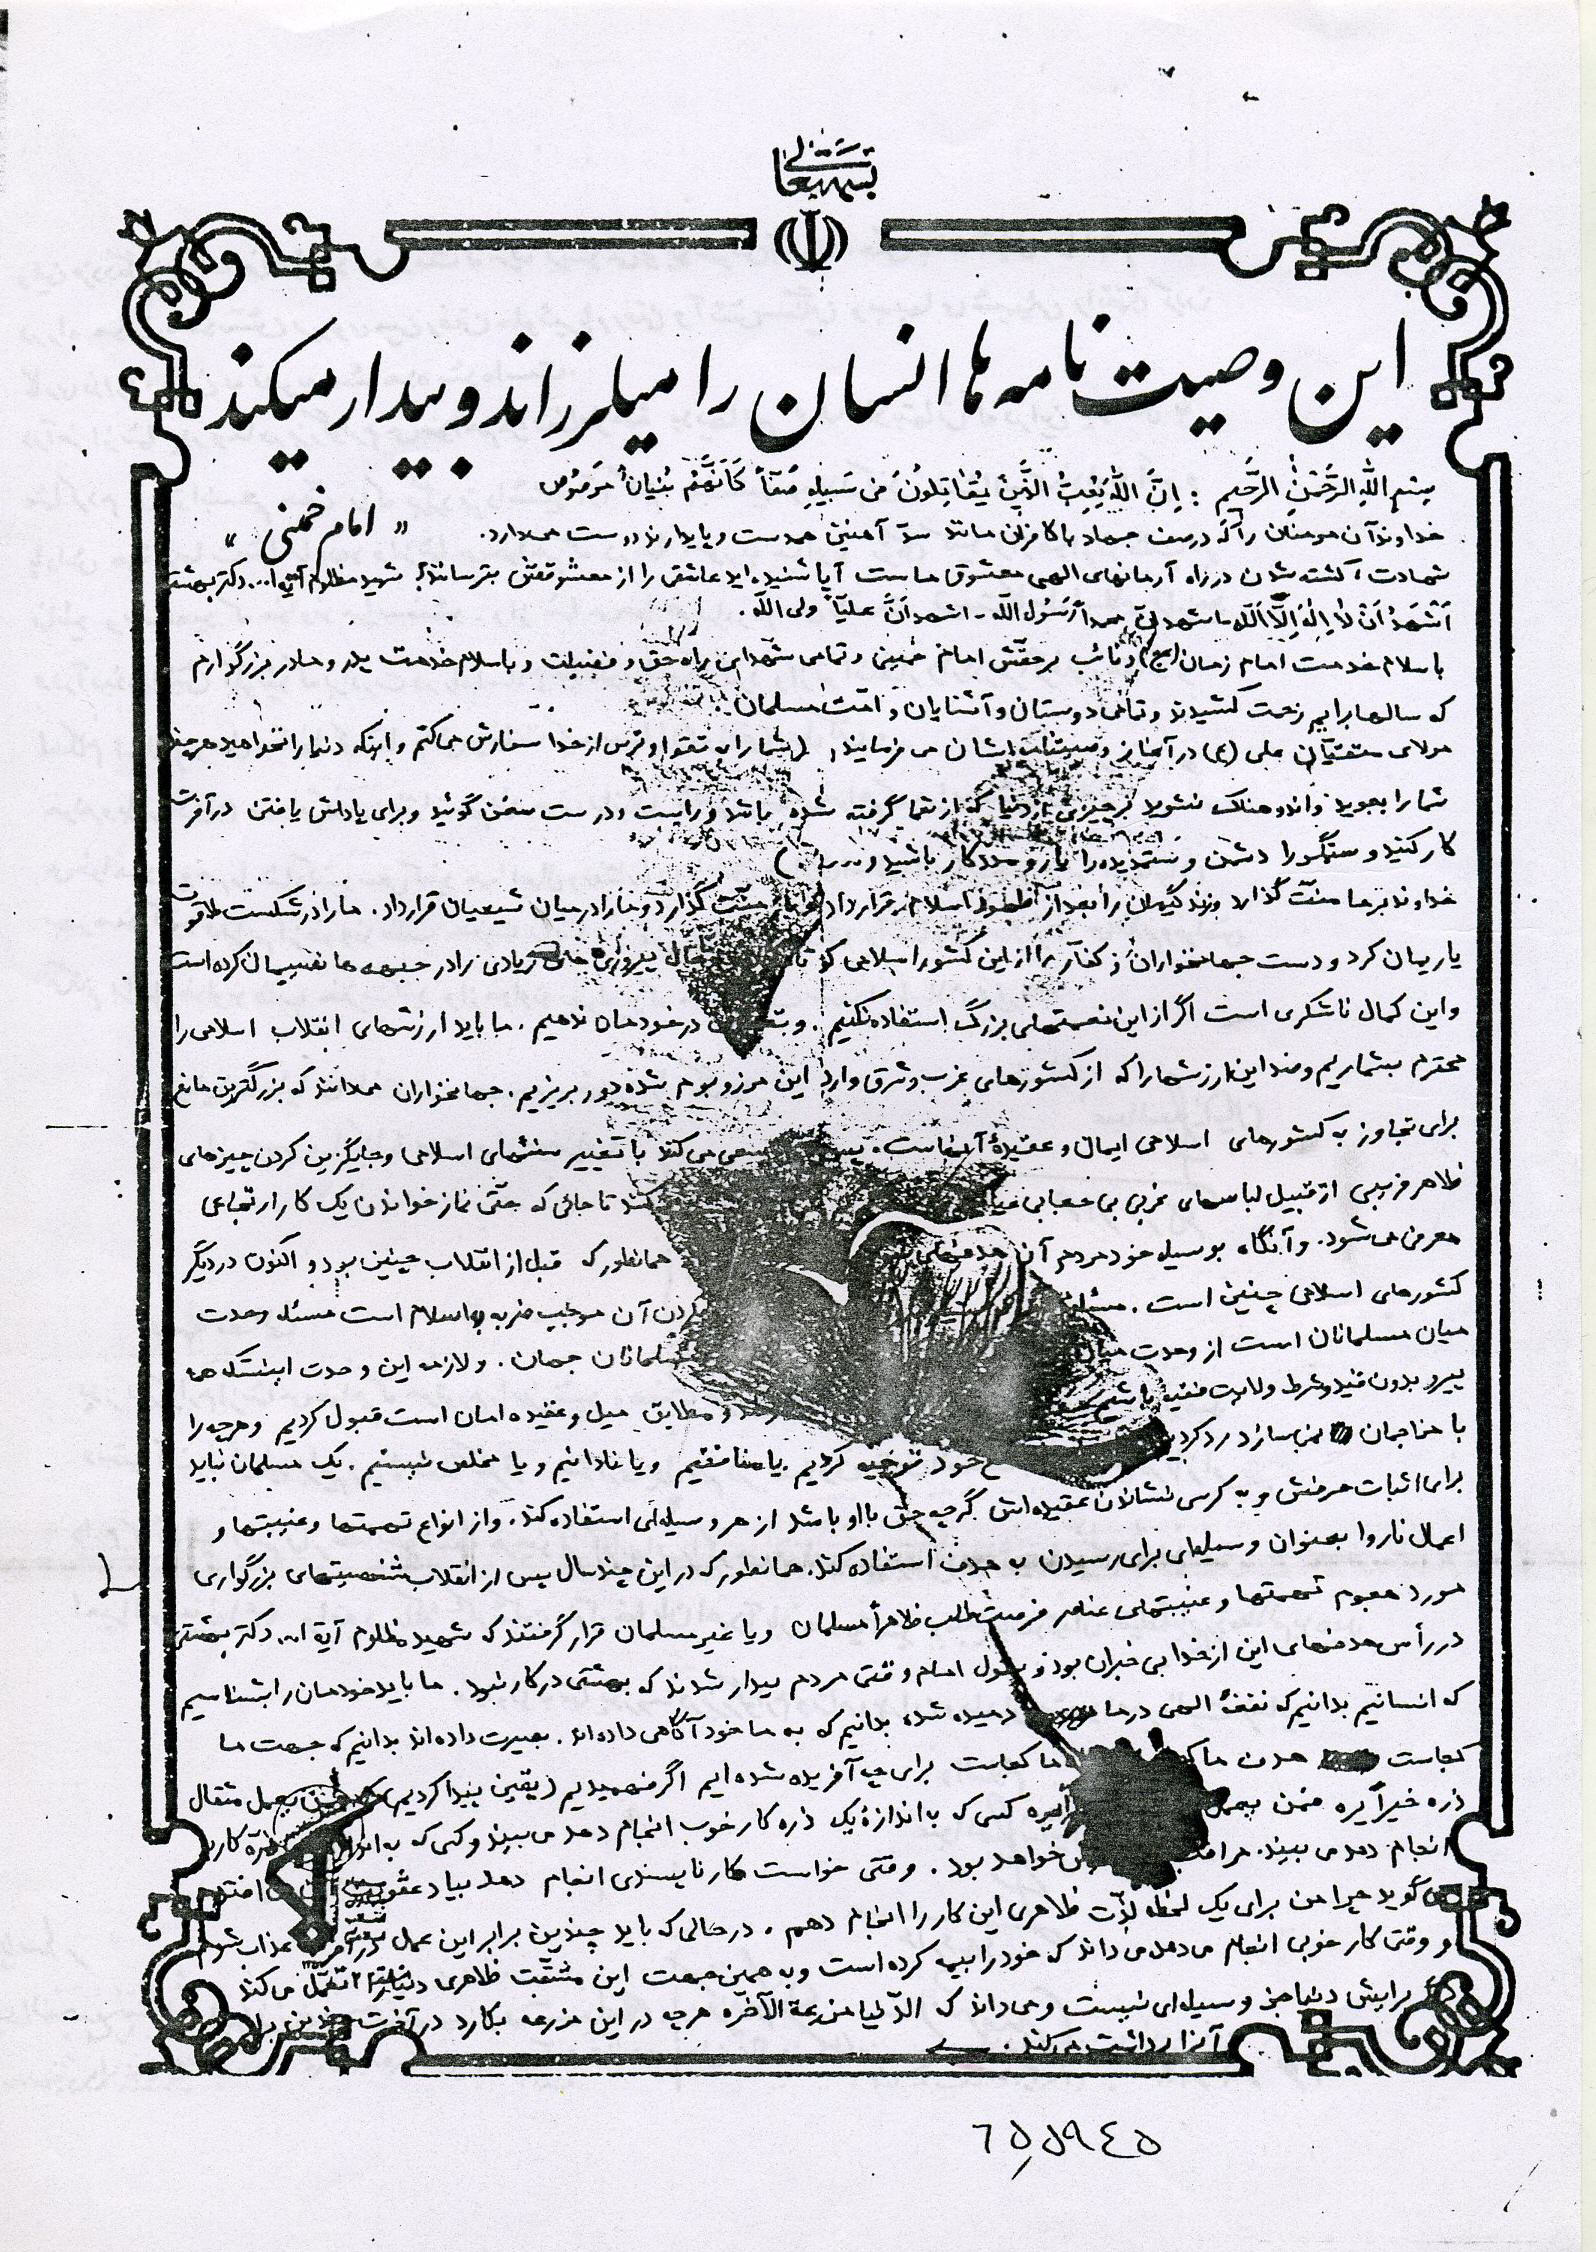 بسمه تعالی
این وصیت نامه ها انسان را میلرزاند و بیدار میکند
« امام خمینی »
بسم الله الرحمن الرحیم : ان الله یحب الذین یقاتلون فی سبیله صفاً کانهم بنیان مرصوص
خداوند آن مومنان را که در صف جهاد با کافران مانند سدّ آهنین همدست و پایدارند دوست میدارد.
شهادت، کشته شدن در راه آرمانهای الهی معشوق ماست آیا شنیده اید عاشقی را از معشوقش بترسانند؟ شهید مظلوم آیة ا... دکتر بهشتی
اَشْهَدُ اَنْ لا اِلهَ اِلَّا اللّه - اشهد انّ محمداً رَسُول اللّه - اشهد اَنَّ علیّاً ولی اللّه.
با سلام خدمت امام زمان (عج) و نائب برحقّش امام خمینی و تمامی شهدای راه حق و فضیلت و با سلام خدمت پدر و مادر بزرگوارم
که سالها برایم زحمت کشیدند و تمامی دوستان و آشنایان و امّت مسلمان.
مولای متقیّان علی (ع) در آغاز وصیتنامه ایشان می فرمایند، (شما را به تقوا و ترس از خدا سفارش می کنم و اینکه دنیا را نخواهید هر چند
شما را بجوید و اندوهناک نشوید بر چیزی از دنیا که از شما گرفته شده باشد و راست و درست سخن گوئید و برای پاداش یافتن در آخرت
کار کنید و ستمگر را دشمن و ستمدیده را یار و مددکار باشید و ....)
خداوند بر ما منّت گذارد و زندگیمان را بعد از ظهور اسلام قرار داد و بر ما منّت گذارد و ما را در میان شیعیان قرار داد. ما را در شکست طاغوت
یاریمان کرد و دست جهانخواران و کفّار را از این کشور اسلامی کوتاه پیروزی های زیادی را در جبهه ها نصیبمان کرده است
و این کمال ناشکری است اگر از این نعمتهای بزرگ استفاده نکنیم. و در خودمان ندهیم. ما باید ارزشهای انقلاب اسلامی را
محترم بشماریم و ضد این ارزشها را که از کشورهای غرب و شرق وارد این مرز و بوم شده دور بریزیم. جهانخواران میدانند که بزرگترین مانع
برای تجاوز به کشورهای اسلامی ایمان و عقیدهٔ آنهاست. پس سعی می کنند با تغییر سنتهای اسلامی و جایگزین کردن چیزهای
ظاهر فریبی از قبیل لباسهای غربی بی حجابی کنند تا جائی که حتّی نماز خواندن یک کار ارتجاعی
معرفی می شود. و آنگاه بوسیله خود مردم آن هدفهای همانطور که قبل از انقلاب چنین بود و اکنون در دیگر
کشورهای اسلامی چنین است. مسئله کردن آن موجب ضربه به اسلام است مسئله وحدت
میان مسلمانان است از وحدت میان مسلمانان جهان. و لازمه این وحدت اینستکه همه
پیرو بدون قید و شرط ولایت فقیه باشیم و مطابق میل و عقیده امان است قبول کردیم و هر چه را
با مزاجمان نمی سازد رد کردیم خود توجیه کردیم. یا منافقیم و یا نادانیم و یا مخلص نیستیم. یک مسلمان نباید
برای اثبات حرفش و به کرسی نشاندن عقیده اش گر چه حق با او باشد از هر وسیله ای استفاده کند. و از انواع تهمتها و غیبتها و
اعمال ناروا بعنوان وسیله ای برای رسیدن به هدف استفاده کند. همانطور که در این چند سال پس از انقلاب شخصیتهای بزرگواری
مورد هجوم تهمتها و غیبتهای عناصر فرصت طلب ظاهراً مسلمان و یا غیر مسلمان قرار گرفتند که شهید مظلوم آیة ا... دکتر بهشتی
در رأس هدفهای این از خدا بی خبران بود و بقول امام وقتی مردم بیدار شدند که بهشتی در کار نبود. ما باید خودمان را بشناسیم
که انسانیم بدانیم که نفخهٔ الهی در ما دمیده شده بدانیم که به ما خودآگاهی داده اند. بصیرت داده اند بدانیم که جهت ما
کجاست هدف ما ما کجاست برای چه آفریده شده ایم اگر فهمیدیم (یقین پیدا کردیم) که فمن یعمل مثقال
ذره خیراً یره فمن یعمل یره کسی که به اندازهٔ یک ذره کار خوب انجام دهد می بیند و کسی که به اندازه ذره کار بد
انجام دهد می بیند. خواهد بود. وقتی خواست کار ناپسندی انجام دهد بیاد عقوبت می افتد
می گوید چرا من برای یک لحظه لذّت ظاهری این کار را انجام دهم. در حالی که باید چندین برابر این عمل در آخرت عذاب شوم
و وقتی کار خوبی انجام می دهد می داند که خود را بیمه کرده است و به همین جهت این مشقّت ظاهری دنیا را تحمّل می کند
برایش دنیا جز وسیله ای نیست و می داند که الدّنیا مزرعة الآخره هر چه در این مزرعه بکارد در آخرت چندین برابر
آنرا برداشت می کند.
۶۵۵۹۴۵